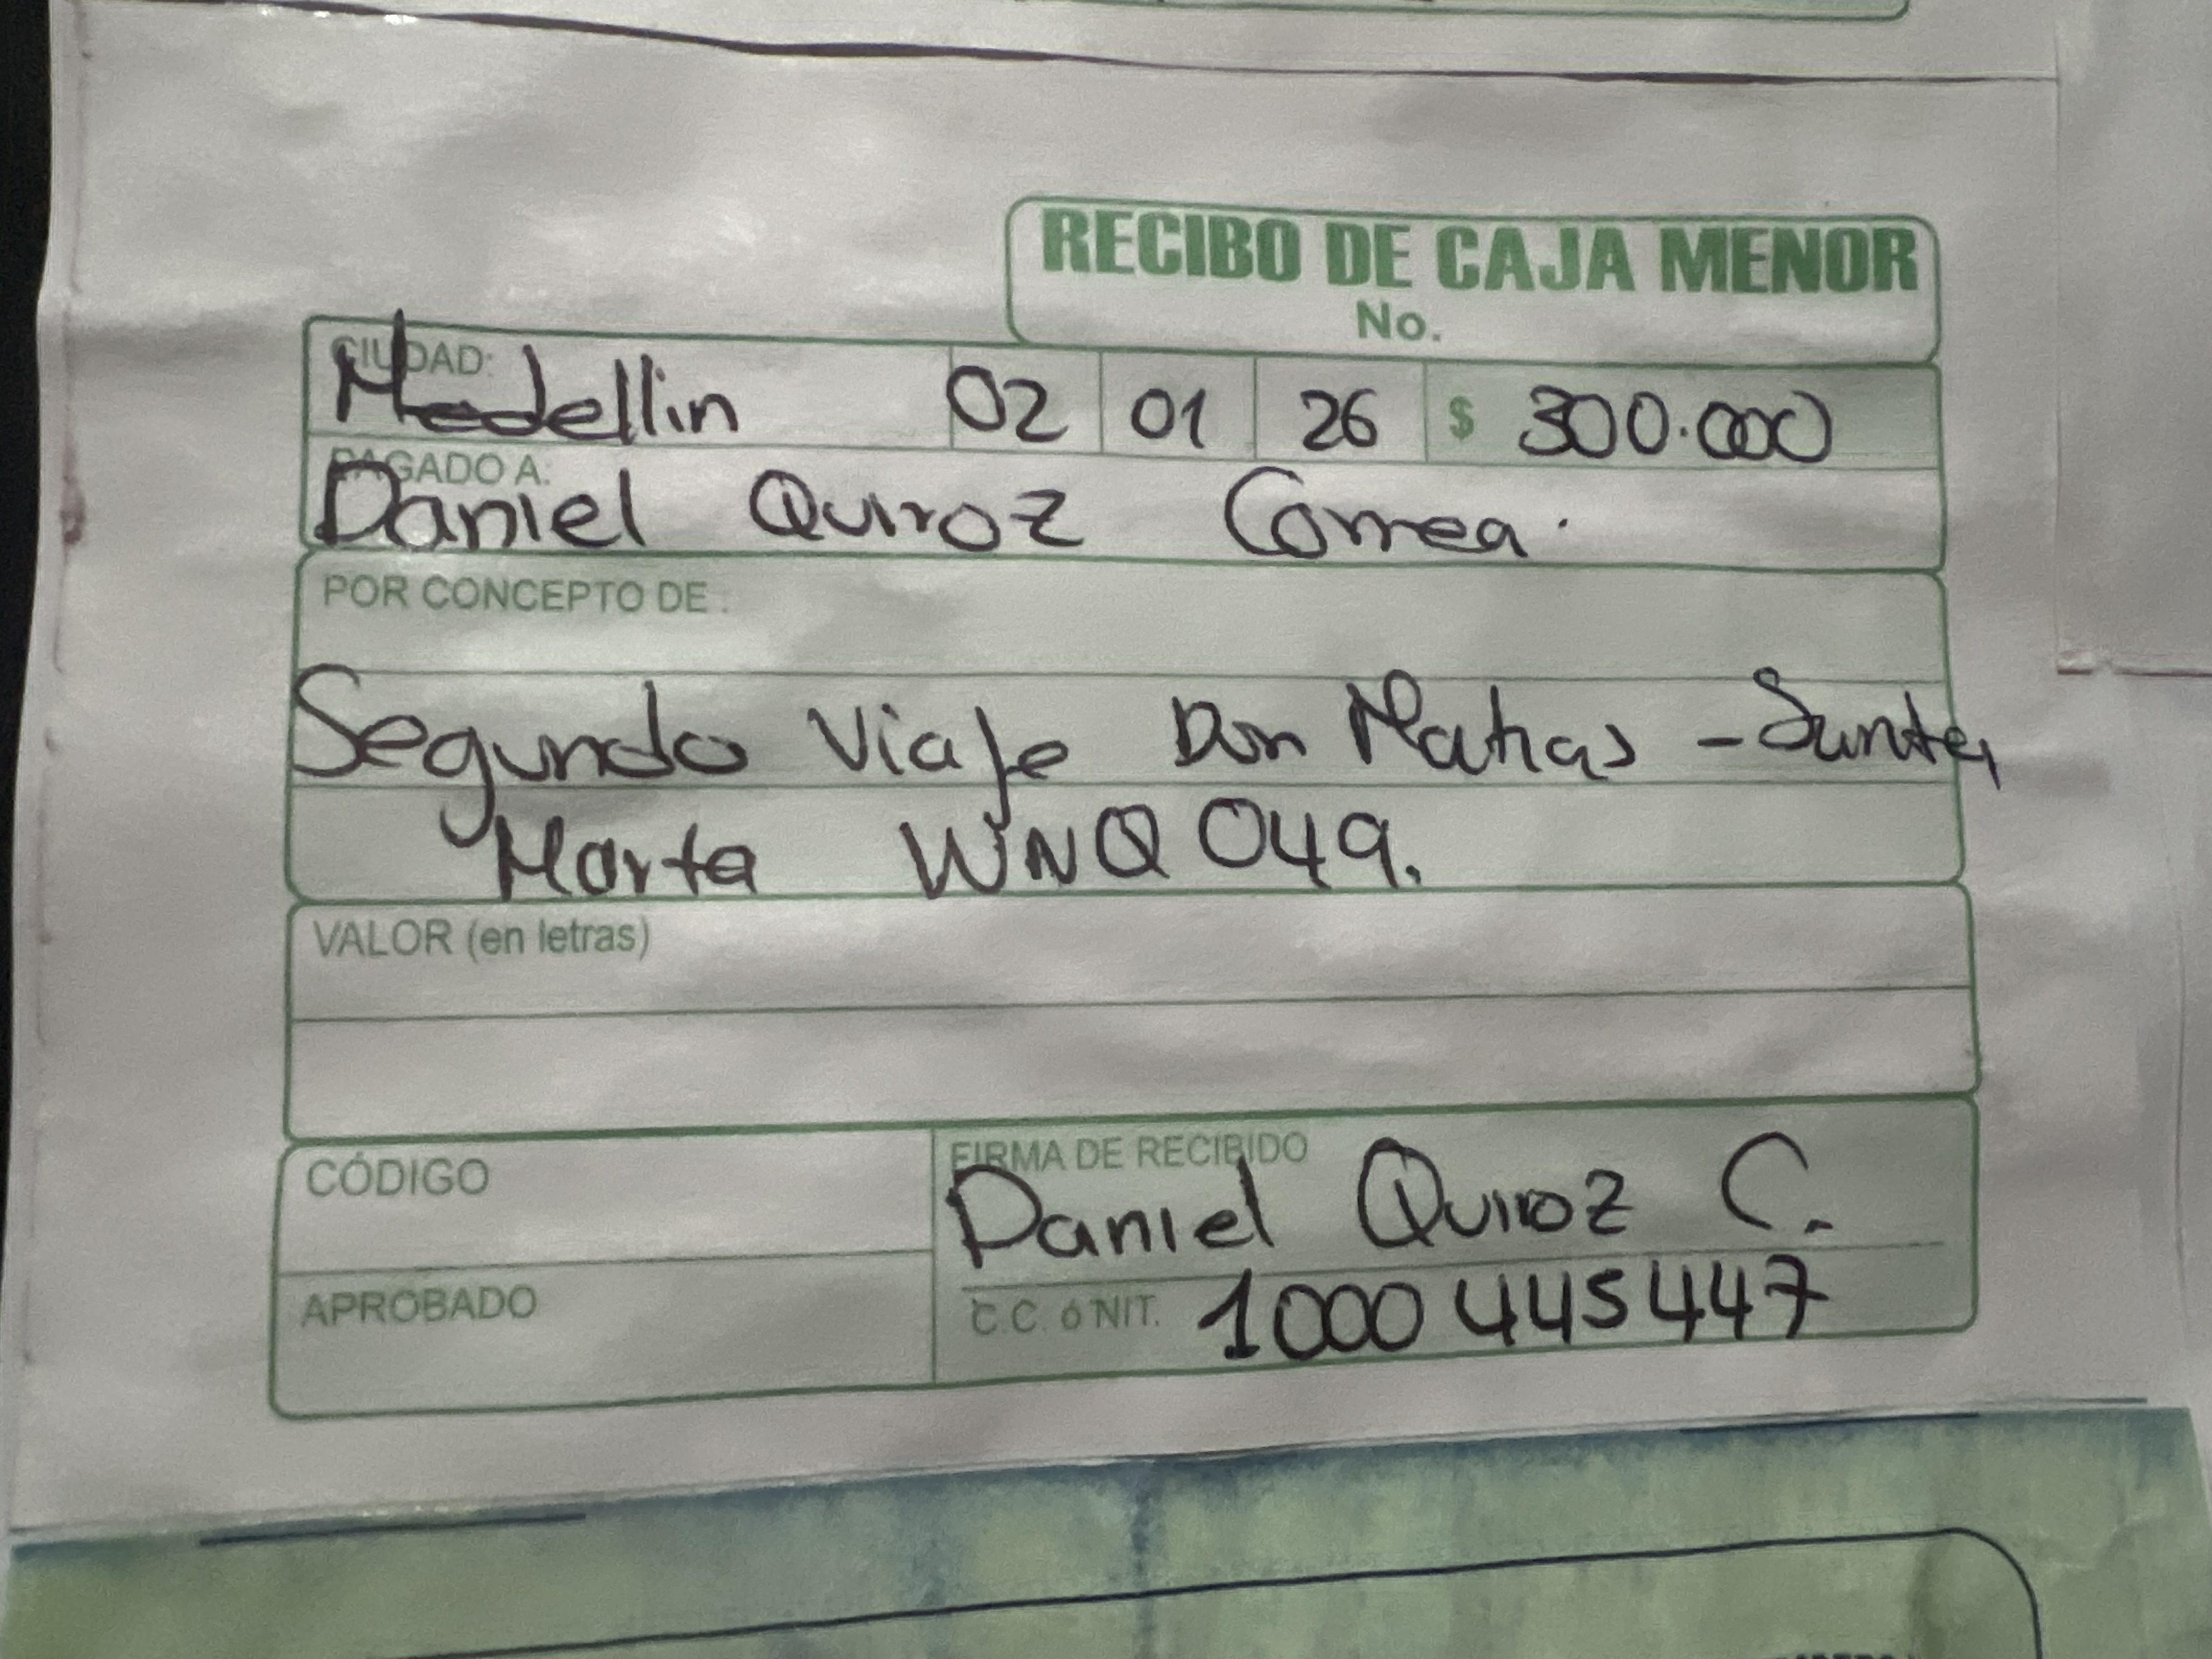 RECIBO DE CAJA MENOR
No.
CIUDAD: Medellin 02 01 26 $ 300.000
PAGADO A: Daniel Quiroz Correa.
POR CONCEPTO DE :
Segundo Viaje Don Matias - Santa
Marta WNQ 049.
VALOR (en letras)
CÓDIGO
FIRMA DE RECIBIDO Daniel Quiroz C.
APROBADO
C.C. ó NIT. 1000 445 447